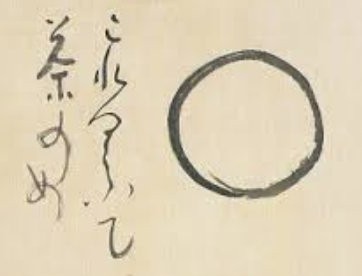 これくらふて
茶のめ